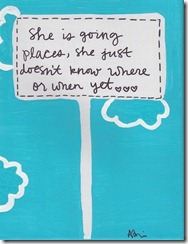 She is going
places, she just
doesn't know where
or when yet ♡♡♡